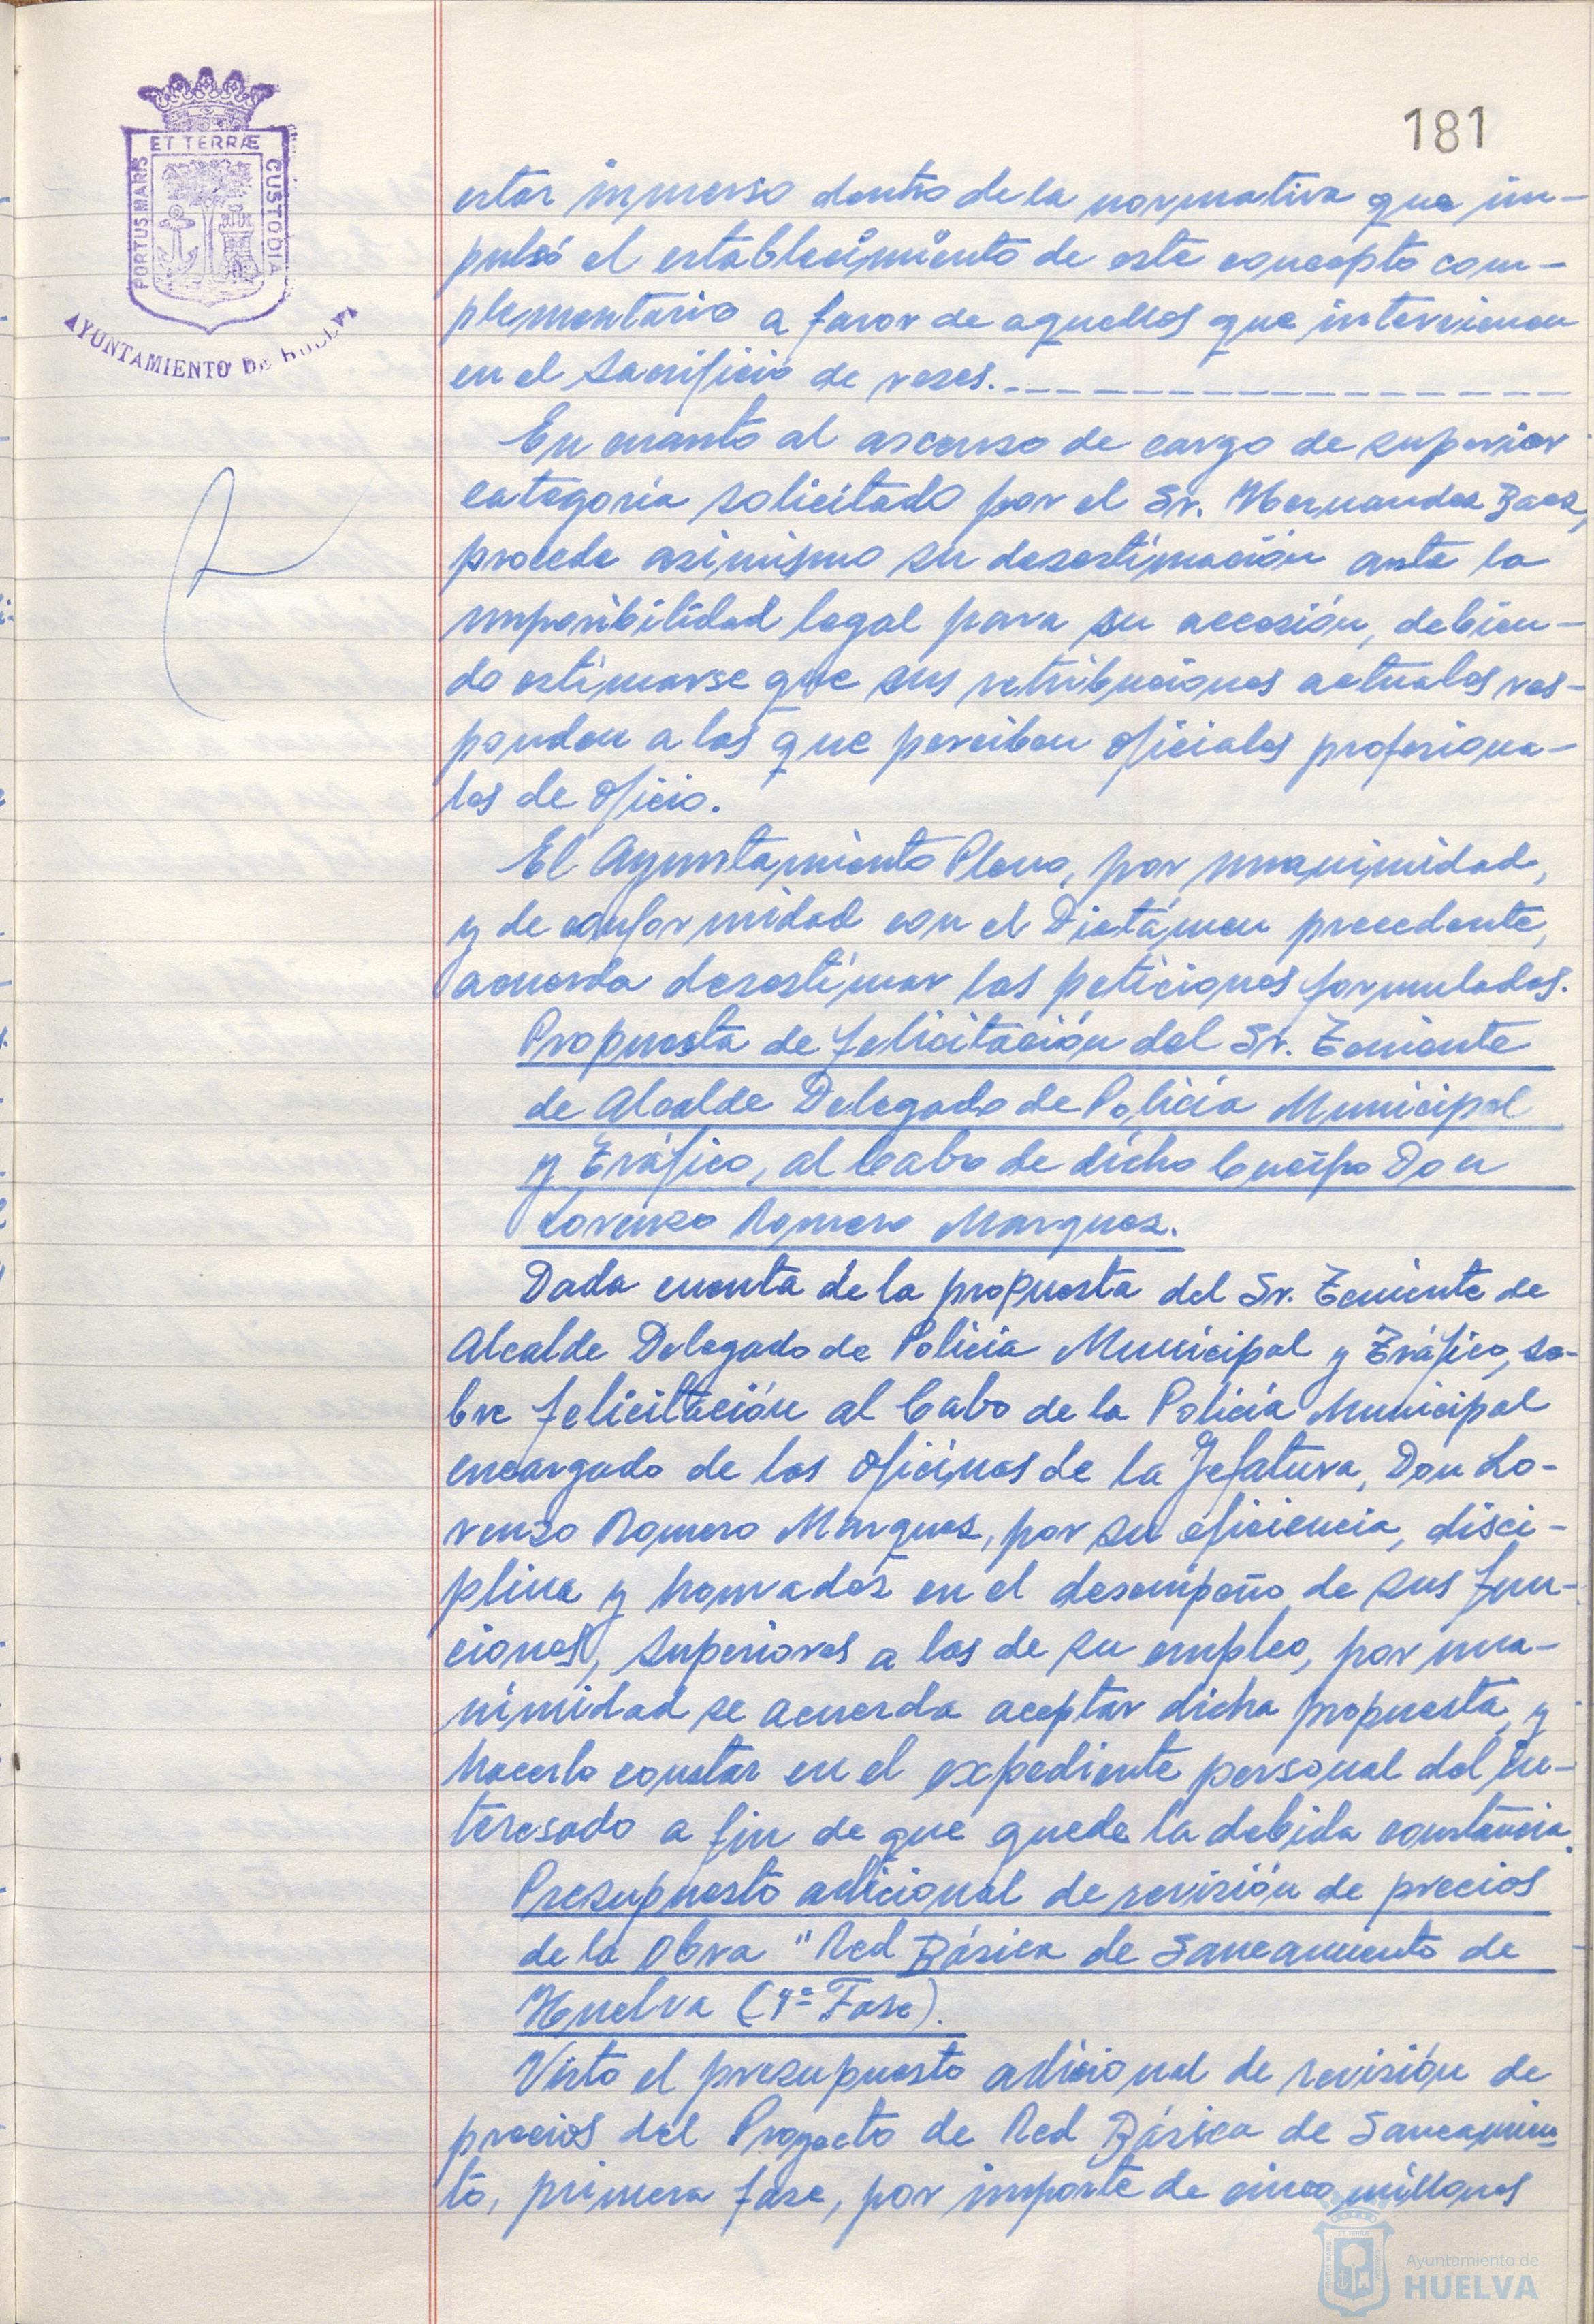 181
PORTUS MARIS
ET TERRÆ
CUSTODIA
AYUNTAMIENTO DE HUELVA
estar inmerso dentro de la normativa que im-
pulsó el establecimiento de este concepto com-
plementario a favor de aquellos que intervienen
en el sacrificio de reses.
En cuanto al ascenso de cargo de superior
categoría solicitado por el Sr. Hernandez Baez,
procede asimismo su desestimación ante la
imposibilidad legal para su accesión, debien-
do estimarse que sus retribuciones actuales res-
ponden a las que perciben oficiales profesiona-
les de oficio.
El Ayuntamiento Pleno, por unanimidad,
y de conformidad con el Dictámen precedente,
acuerda desestimar las peticiones formuladas.
Propuesta de felicitación del Sr. Teniente
de Alcalde Delegado de Policía Municipal
y Tráfico, al Cabo de dicho Cuerpo Don
Lorenzo Romero Marquez.
Dada cuenta de la propuesta del Sr. Teniente de
Alcalde Delegado de Policía Municipal y Tráfico, so-
bre felicitación al Cabo de la Policía Municipal
encargado de las oficinas de la Jefatura, Don Lo-
renzo Romero Marquez, por su eficiencia, disci-
plina y honradez en el desempeño de sus fun-
ciones, superiores a las de su empleo, por una-
nimidad se acuerda aceptar dicha propuesta, y
hacerlo constar en el expediente personal del in-
teresado a fin de que quede la debida constancia.
Presupuesto adicional de revisión de precios
de la Obra "Red Básica de Saneamiento de
Huelva (1ª Fase).
Visto el presupuesto adicional de revisión de
precios del Proyecto de Red Básica de Saneamien-
to, primera fase, por importe de cinco millones
Ayuntamiento de
HUELVA